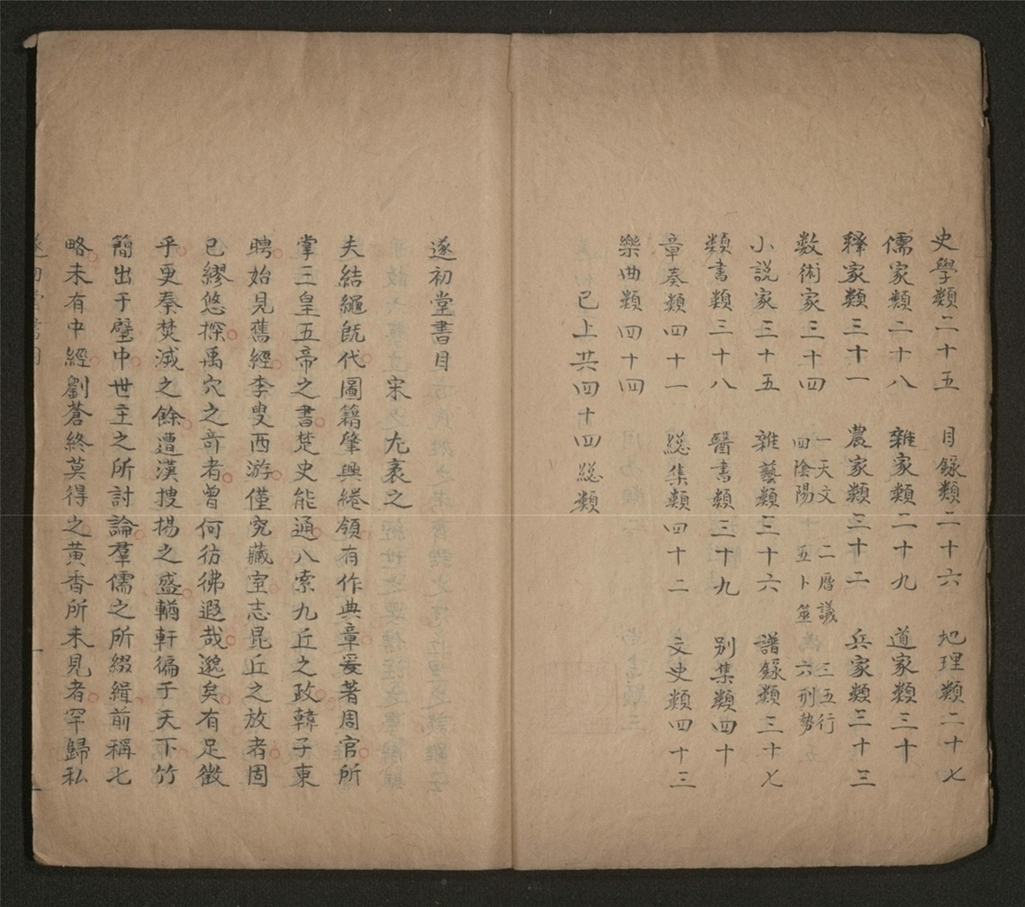 史學類二十五　目錄類二十六　地理類二十七
儒家類二十八　雜家類二十九　道家類三十
釋家類三十一　農家類三十二　兵家類三十三
数術家三十四　一天文　二曆議　三五行
四陰陽　五卜筮　六刑勢
小説家三十五　雜藝類三十六　譜錄類三十七
類書類三十八　醫書類三十九　别集類四十
章奏類四十一　総集類四十二　文史類四十三
樂曲類四十四
已上共四十四総類
遂初堂書目
宋　尤袤之
夫結繩旣代圖籍肇興綣領有作典章爰著周官所
掌三皇五帝之書楚史能通八索九丘之政韓子東
聘始見舊經李叟西游僅窺藏室志昆丘之放者固
已繆悠探禹穴之奇者曾何彷彿遐哉邈矣有足徵
乎更秦焚滅之餘遭漢搜揚之盛輶軒徧于天下竹
簡出于壁中世主之所討論羣儒之所綴緝前稱七
略未有中經劉蒼終莫得之黄香所未見者罕歸私